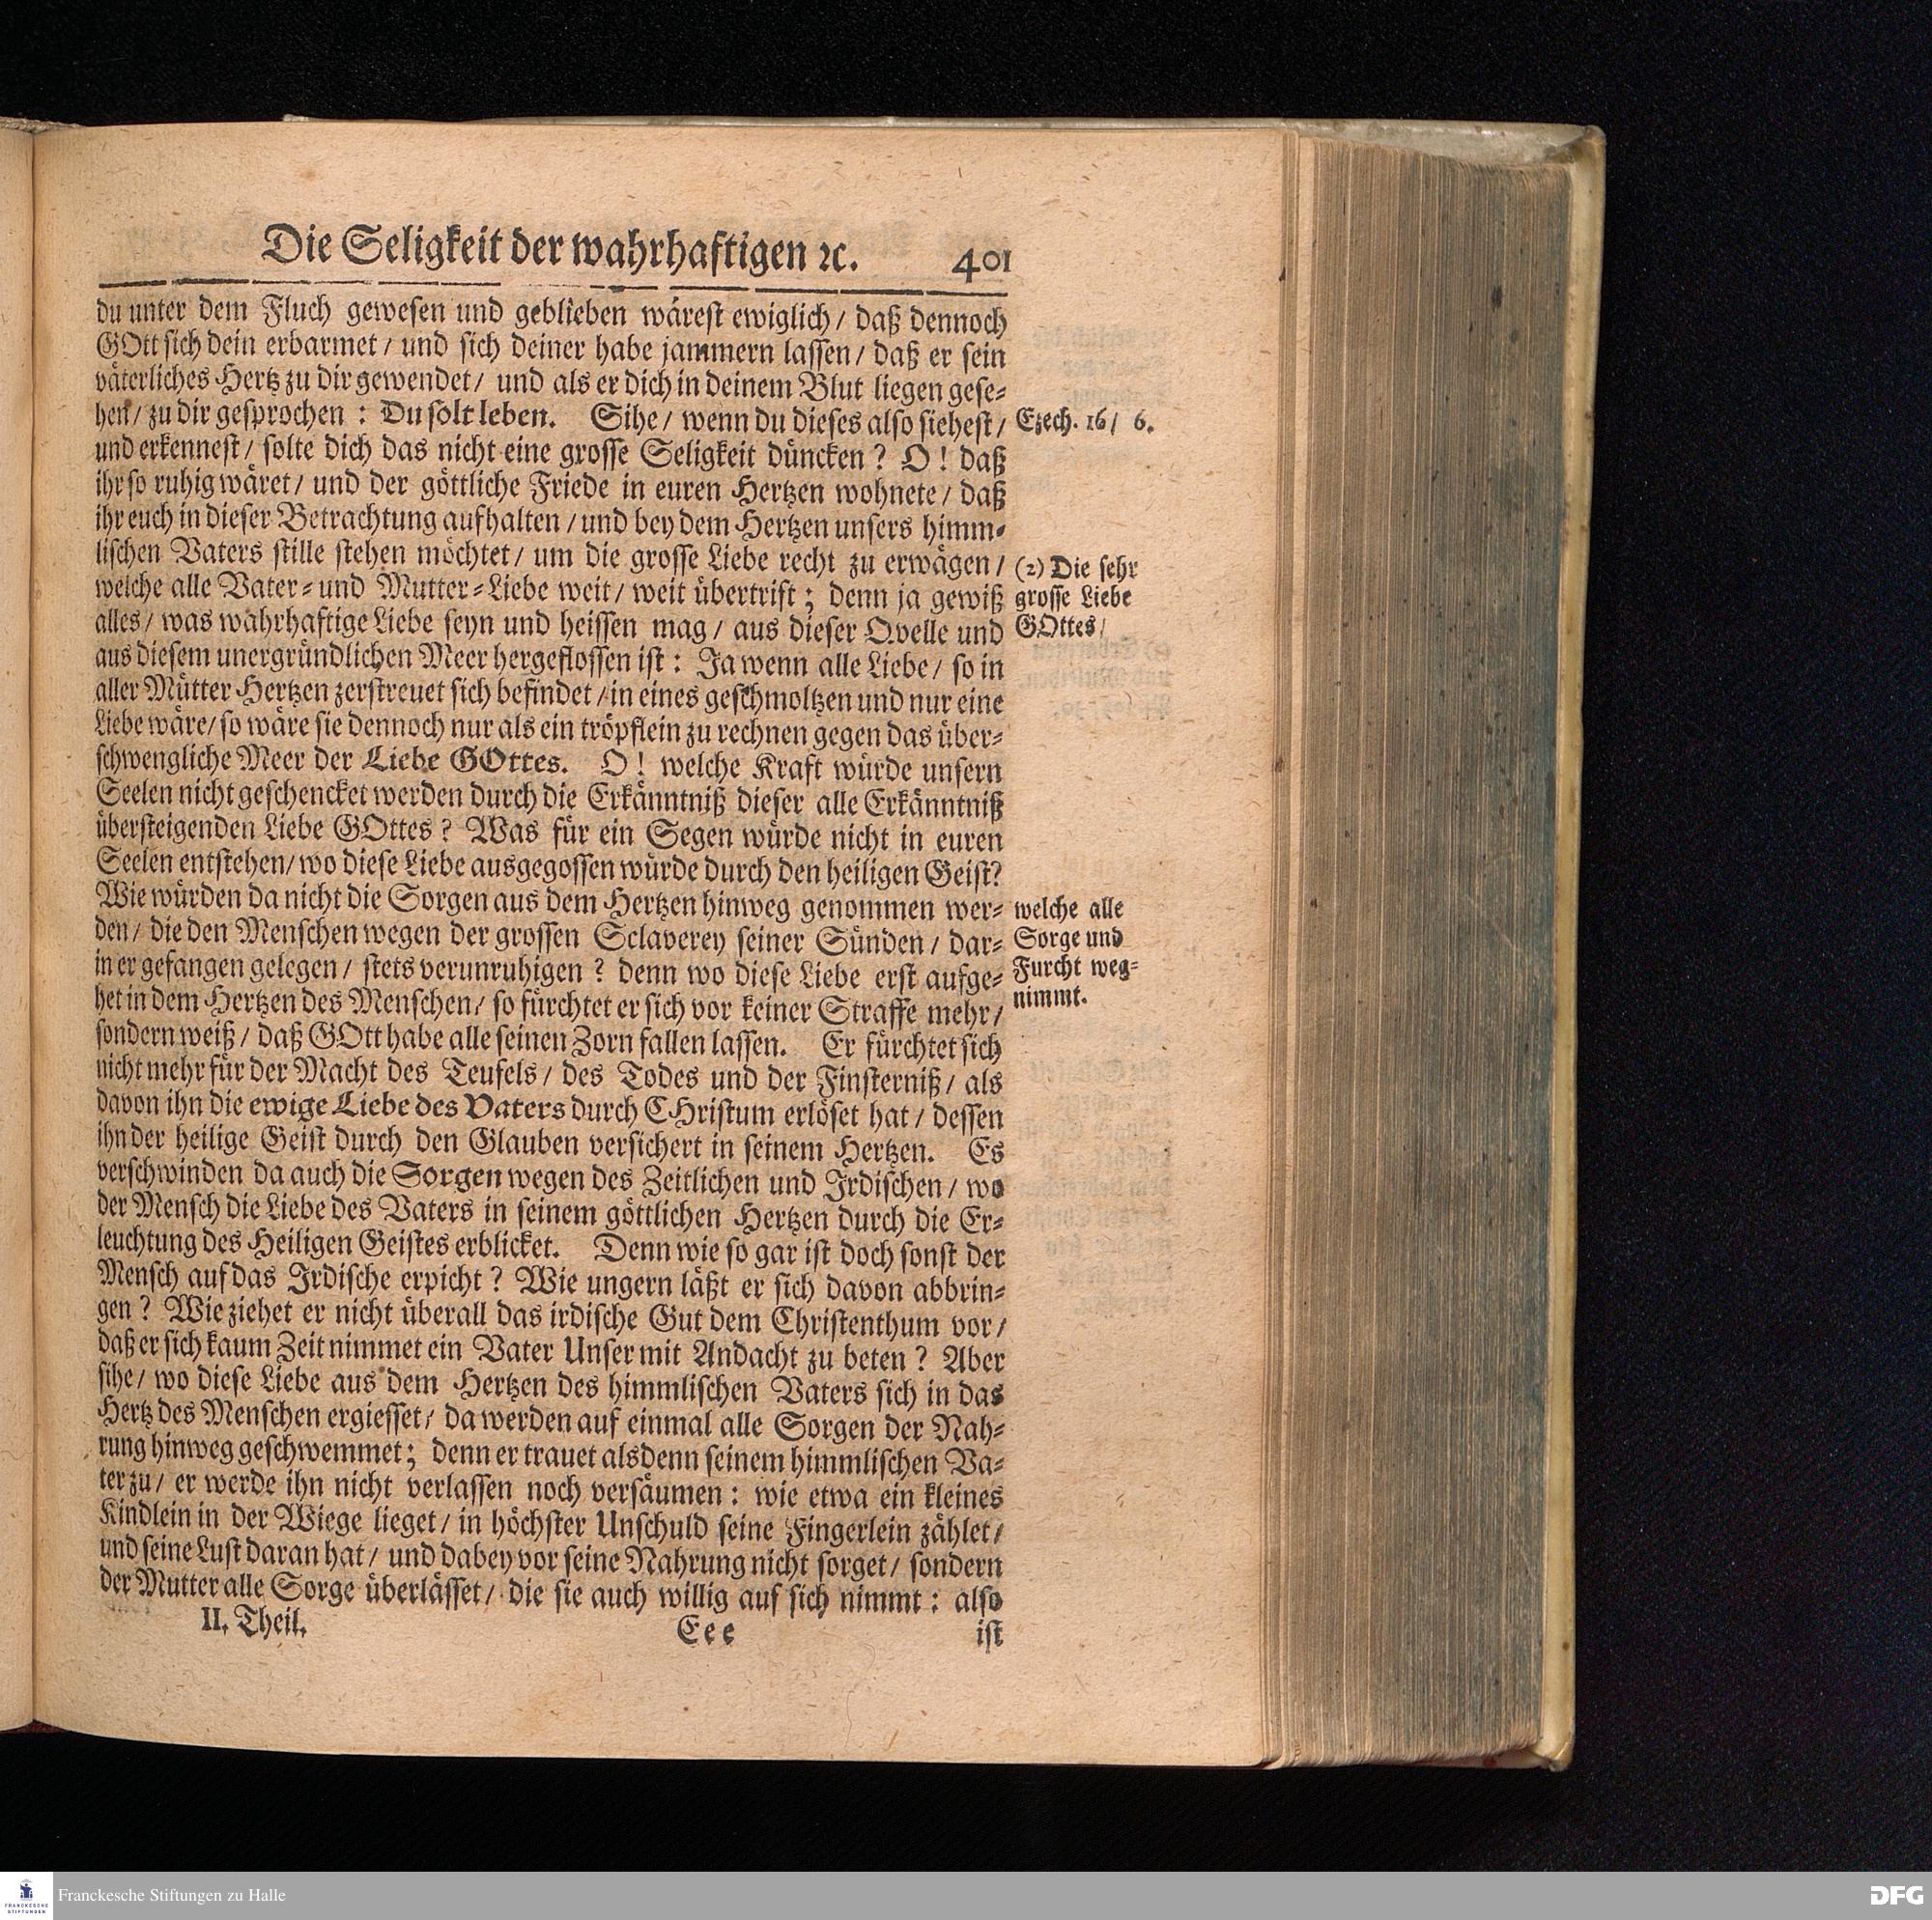 Die Seligkeit der wahrhaftigen ꝛc. 401
du unter dem Fluch gewesen und geblieben wärest ewiglich / daß dennoch
GOtt sich dein erbarmet / und sich deiner habe jammern lassen / daß er sein
väterliches Hertz zu dir gewendet / und als er dich in deinem Blut liegen gese-
hen / zu dir gesprochen : Du solt leben. Sihe / wenn du dieses also siehest /
Ezech. 16 / 6.
und erkennest / solte dich das nicht eine grosse Seligkeit düncken ? O ! daß
ihr so ruhig wäret / und der göttliche Friede in euren Hertzen wohnete / daß
ihr euch in dieser Betrachtung aufhalten / und bey dem Hertzen unsers himm-
lischen Vaters stille stehen möchtet / um die grosse Liebe recht zu erwägen /
welche alle Vater- und Mutter-Liebe weit / weit übertrift ; denn ja gewiß
alles / was wahrhaftige Liebe seyn und heissen mag / aus dieser Qvelle und
(2) Die sehr
grosse Liebe
GOttes /
aus diesem unergründlichen Meer hergeflossen ist : Ja wenn alle Liebe / so in
aller Mütter Hertzen zerstreuet sich befindet / in eines geschmoltzen und nur eine
Liebe wäre / so wäre sie dennoch nur als ein tröpflein zu rechnen gegen das über-
schwengliche Meer der Liebe GOttes. O ! welche Kraft würde unsern
Seelen nicht geschencket werden durch die Erkänntniß dieser alle Erkänntniß
übersteigenden Liebe GOttes ? Was für ein Segen würde nicht in euren
Seelen entstehen / wo diese Liebe ausgegossen würde durch den heiligen Geist?
Wie würden da nicht die Sorgen aus dem Hertzen hinweg genommen wer-
den / die den Menschen wegen der grossen Sclaverey seiner Sünden / dar-
in er gefangen gelegen / stets verunruhigen ? denn wo diese Liebe erst aufge-
het in dem Hertzen des Menschen / so fürchtet er sich vor keiner Straffe mehr /
welche alle
Sorge und
Furcht weg-
nimmt.
sondern weiß / daß GOtt habe alle seinen Zorn fallen lassen. Er fürchtet sich
nicht mehr für der Macht des Teufels / des Todes und der Finsterniß / als
davon ihn die ewige Liebe des Vaters durch CHristum erlöset hat / dessen
ihn der heilige Geist durch den Glauben versichert in seinem Hertzen. Es
verschwinden da auch die Sorgen wegen des Zeitlichen und Irdischen / wo
der Mensch die Liebe des Vaters in seinem göttlichen Hertzen durch die Er-
leuchtung des Heiligen Geistes erblicket. Denn wie so gar ist doch sonst der
Mensch auf das Irdische erpicht ? Wie ungern läßt er sich davon abbrin-
gen ? Wie ziehet er nicht überall das irdische Gut dem Christenthum vor /
daß er sich kaum Zeit nimmet ein Vater Unser mit Andacht zu beten ? Aber
sihe / wo diese Liebe aus dem Hertzen des himmlischen Vaters sich in das
Hertz des Menschen ergiesset / da werden auf einmal alle Sorgen der Nah-
rung hinweg geschwemmet ; denn er trauet alsdenn seinem himmlischen Va-
ter zu / er werde ihn nicht verlassen noch versäumen : wie etwa ein kleines
Kindlein in der Wiege lieget / in höchster Unschuld seine Fingerlein zählet /
und seine Lust daran hat / und dabey vor seine Nahrung nicht sorget / sondern
der Mutter alle Sorge überlässet / die sie auch willig auf sich nimmt : also
II. Theil. Eee ist
FRANCKESCHE STIFTUNGEN
Franckesche Stiftungen zu Halle
DFG